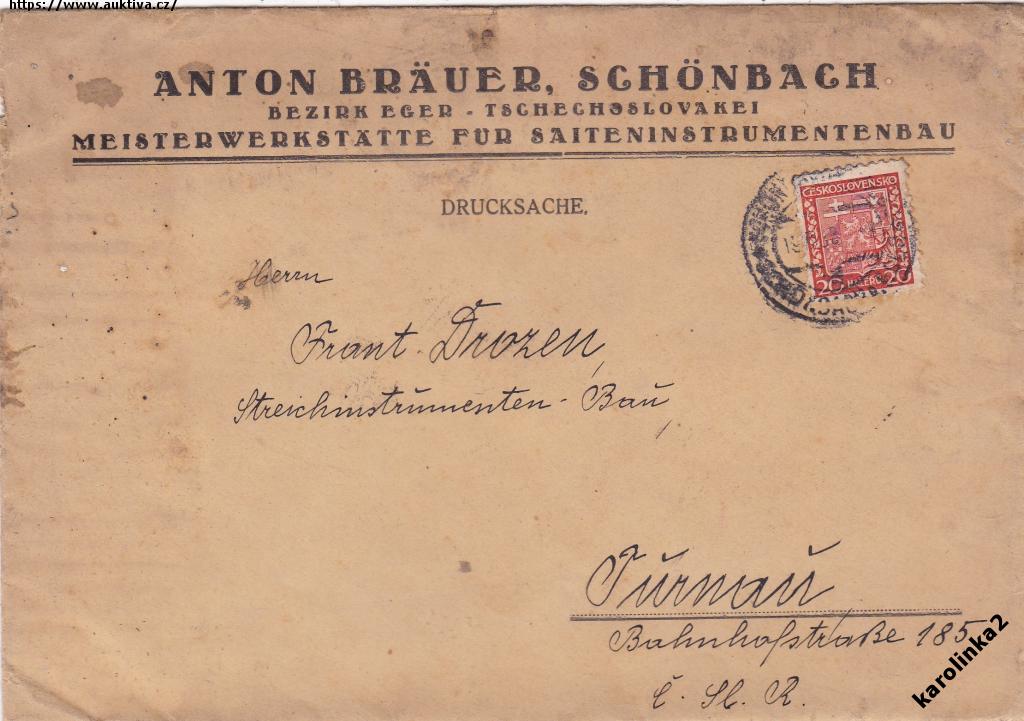 https://www.auktiva.cz/
ANTON BRÄUER, SCHÖNBACH
BEZIRK EGER - TSCHECHOSLOVAKEI
MEISTERWERKSTÄTTE FÜR SAITENINSTRUMENTENBAU
DRUCKSACHE.
ČESKOSLOVENSKO
20 HALÉŘŮ 20
Herrn
Frant. Drozen,
Streichinstrumenten-Bau,
Turnau
Bahnhofstraße 185
Č. Sl. R.
karolinka2